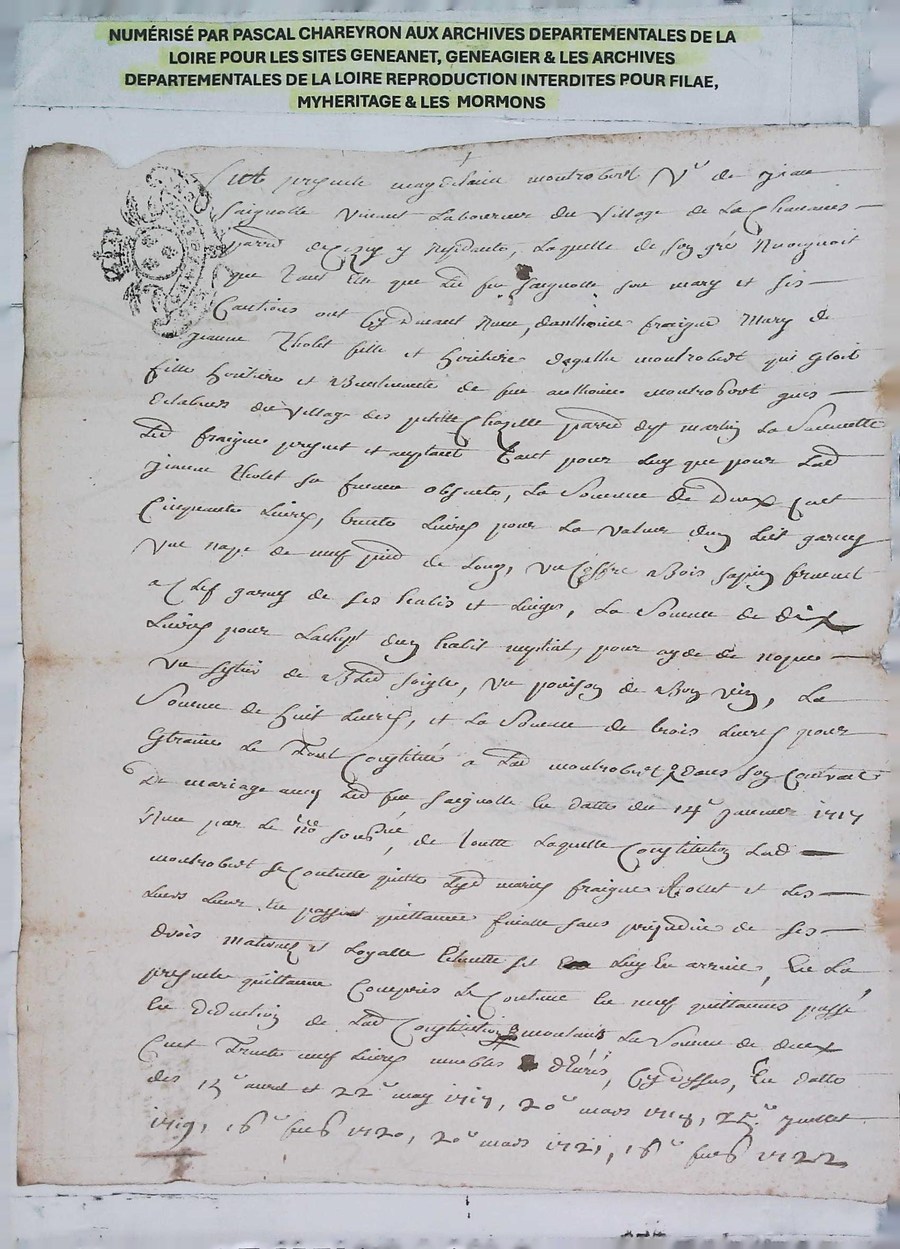 NUMÉRISÉ PAR PASCAL CHAREYRON AUX ARCHIVES DEPARTEMENTALES DE LA
LOIRE POUR LES SITES GENEANET, GENEAGIER & LES ARCHIVES
DEPARTEMENTALES DE LA LOIRE REPRODUCTION INTERDITES POUR FILAE,
MYHERITAGE & LES MORMONS
presente magdelaine montrobert Vᵉ de jean
saignolle vivant Laboureur du Village de La
parr de y Residante, laquelle de son gré Recognoit
que tant elle que Led feu saignolle son mary et ses
Cautions ont Cydevant Receu, danthoine fraigne Mary de
jeanne tholet fille et heritiere degathe montrobert qui Estoit
fille heritiere et de feu anthoine montrobert
du Village des petitte Chapelle parr dest martin La Sauvetté
Led fraigne present et acceptant tant pour Luy que pour Lad
jeanne tholet sa femme absente, La Somme de Deux Cent
Cinquante Livres, trente Livres pour La valeur dun Lict garny
Une nape de neuf pied de Long, un Coffre Bois sapin fermant
a Clef garny de ses habis et Linges, La Somme de dix
Livres pour Lachept dun habit nuptial, pour ayde de nopce
un de Bled soigle, un poinson de Bon vin, La
Somme de huit Livres, et La Somme de trois Livres pour
Estraine Le Tout Constitué a Lad montrobert dans son Contrat
De mariage avec Led feu saignolle En datte du 14ᵉ janvier 1717
Receu par Le noʳᵉ sousᵉ, de toutte Laquelle Constitution Lad
montrobert se Contente quitte Lesd mariez fraigne tholet et Les
Leurs Leur En passant quittance finalle sans prejudice de ses
drois maternel et Loyalle Escheutte sy Luy En arrive, En La
presente quittance Compris Le Contenu En neuf quittances passé
En deduction de Lad Constitution montant La Somme de deux
Cent Trente neuf Livres meubles Cydessus, En datte
des 15ᵉ avril et 22ᵉ may 1717, 20ᵉ mars 1718, juillet
1719, 16ᵉ 1720, 20ᵉ mars 1721, 16ᵉ 1722